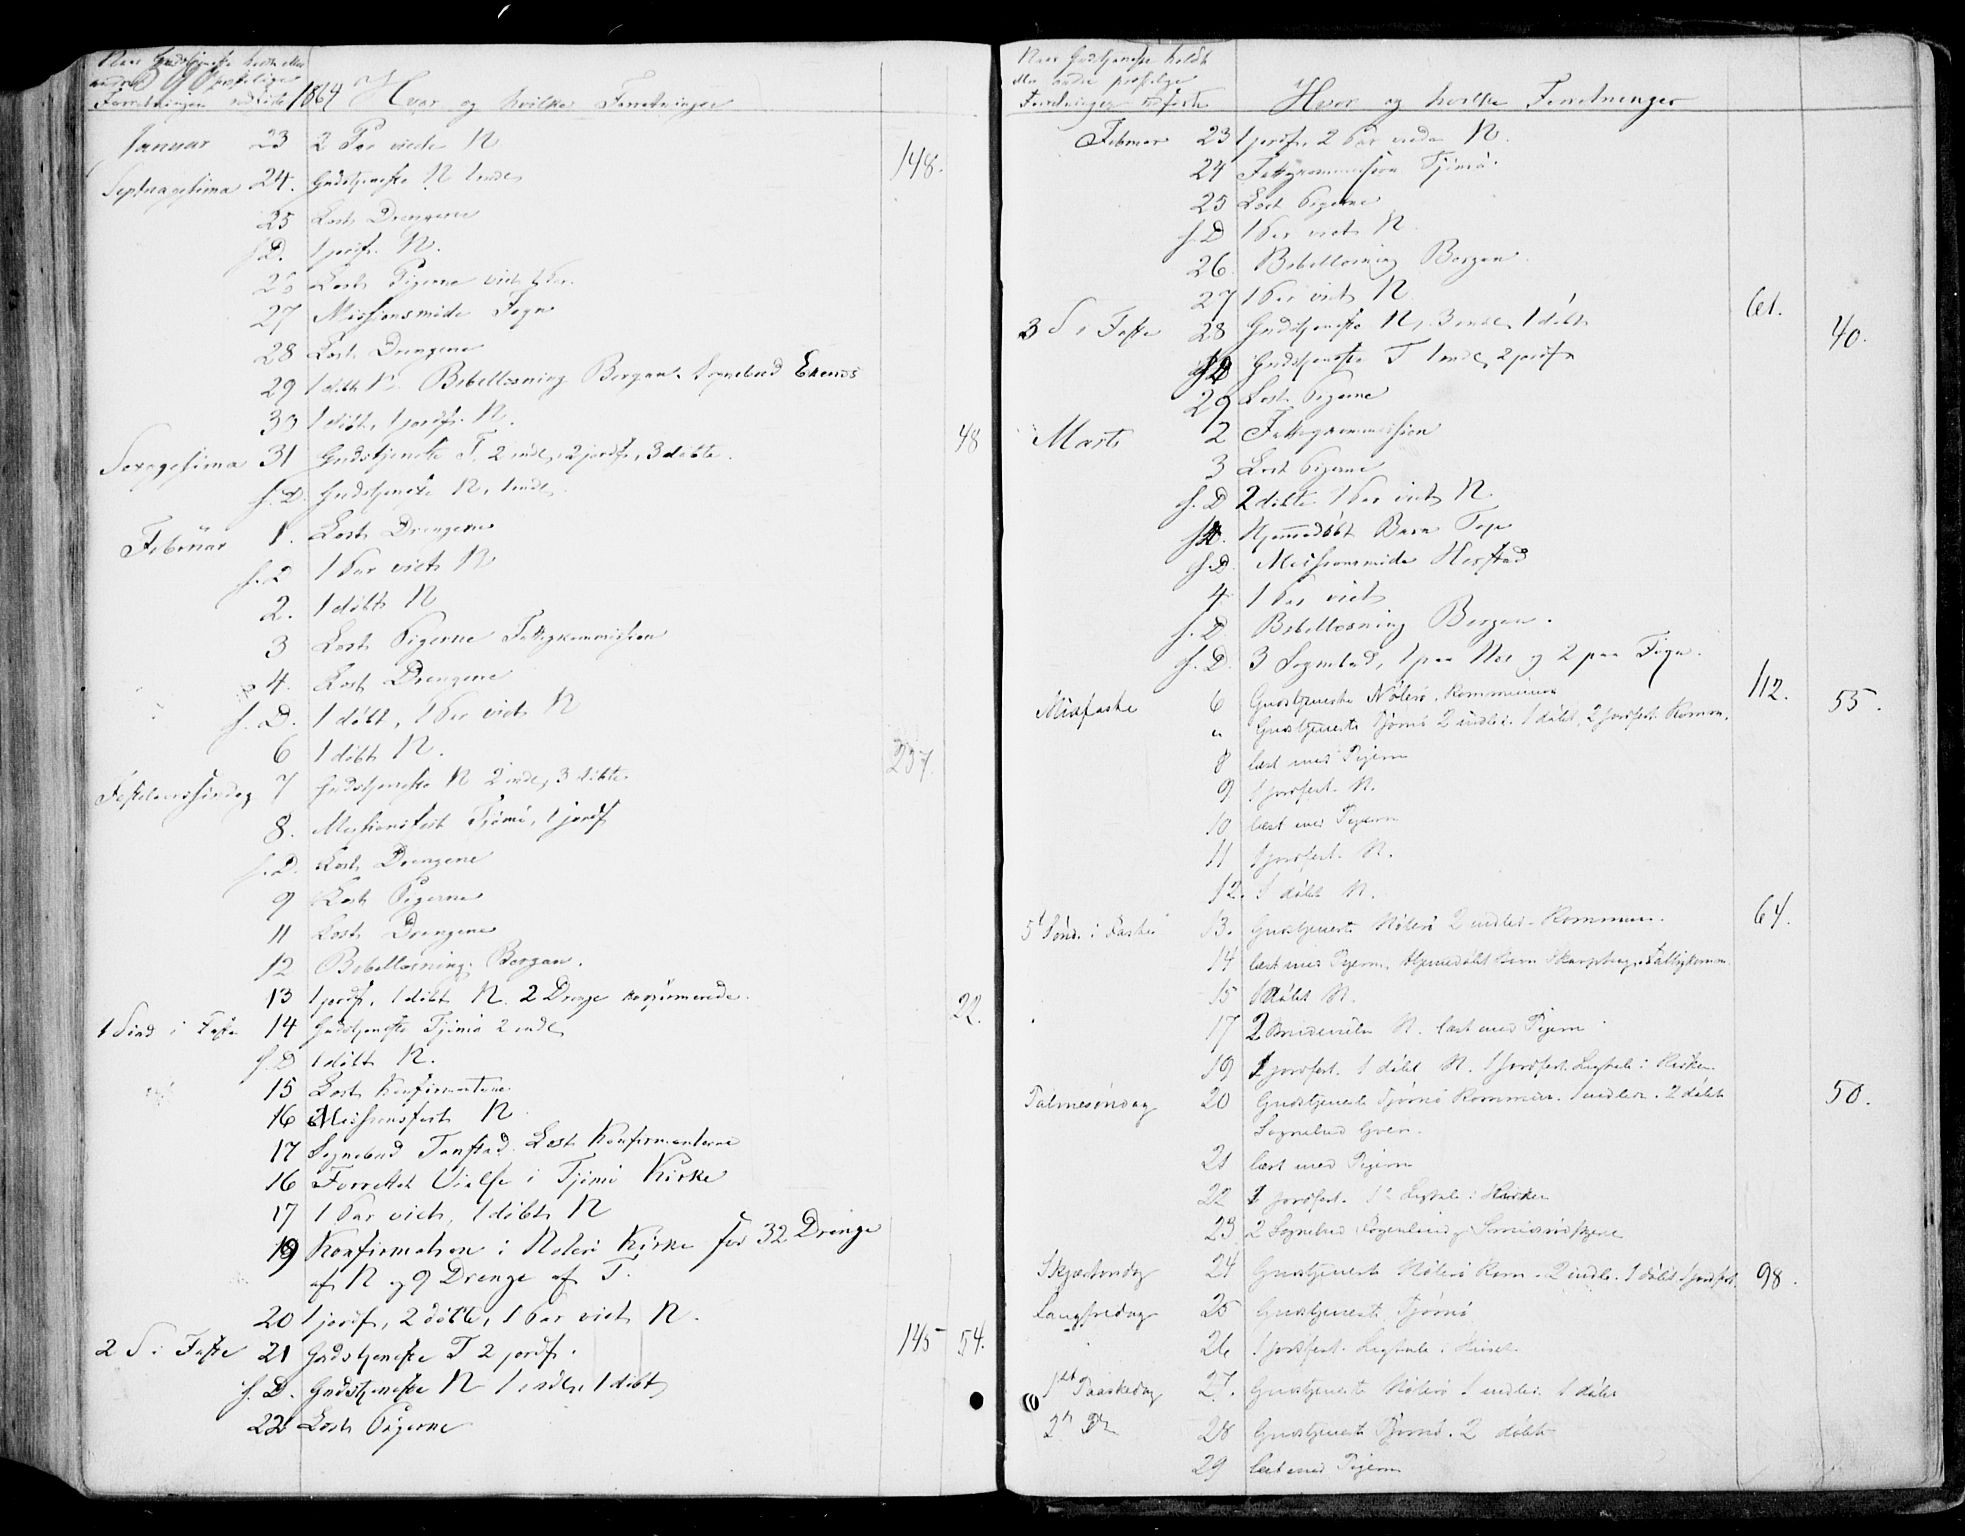 Naar Gudstjeneste holdes eller
andre prestelige
Forretninger 1864 Hvor og hvilke Forretninger
Januar 23 2 Par viede N
Septuagesima 24. Gudstjeneste N 1 indl. 148.
25 Læst Drengene
s. D. 1 jordf. N.
26 Læst Pigerne viet 1 Par.
27 Missionsmøde
28 Læst Drengene
29 1 døbt N. Bibellæsning Bergan. Sognebud Ekenes
30 1 døbt, 1 jordf. N.
Sexagesima 31 Gudstjeneste T. 2 indl., 2 jordf., 3 døbte. 48
s. D. Gudstjeneste N, 1 indl.
Februar 1. Læst Drengene
s. D 1 Par viet N
2. 1 døbt N
3 Læst Pigerne Fattigkommission
4. Læst Drengene
s. D. 1 døbt, 1 Par viet N
6 1 døbt N.
Fastelavnssøndag 7 Gudstjeneste N 2 indl., 3 døbte. 237.
8. Missionsfest Tjømø, 1 jordf
s. D. Læst Drengene
9 Læst Pigerne
11 Læst Drengene
12 Bibellæsning Bergan.
13 1 jordf., 1 døbt N. 2 Drenge
1 Sønd i Faste 14 Gudstjeneste Tjømø 2 indl. 22.
s. D 1 døbt N.
15 Læst Konfirmanterne
16 Missionsfest N
17 Sognebud Tanstad. Læst Konfirmanterne
16 Forrettet Vielse i Tjømø Kirke
17 1 Par viet, 1 døbt N
19 Konfirmation i Nøterø Kirke for 32 Drenge
af N og 9 Drenge af T.
20 1 jordf., 2 døbte, 1 Par viet N.
2 S. i Faste 21 Gudstjeneste T 2 jordf. 145 54.
s. D. Gudstjeneste N 1 indl., 1 døbt
22 Læst Pigerne
Naar Gudstjeneste holdt
eller andre prestelige
Forretninger Hvor og hvilke Forretninger
Februar 23 1 jordf. 2 Par viede N.
24 Fattigkommission Tjømø.
25 Læst Pigerne
s. D 1 Par viet N
26. Bibellæsning Bergan.
27 1 Par viet N
3 S. i Faste 28 Gudstjeneste N, 3 indl, 1 døbt 61.
s. D Gudstjeneste T 1 indl., 2 jordf. 40.
29 Læst Pigerne
Marts 2 Fattigkommission
3 Læst Pigerne
s. D 2 døbte 1 Par viet N
s. D. Hjemmedøbt Barn
s. D. Missionsmøde
4 1 Par viet
s. D. Bibellæsning Bergan.
s. D. 3 Sognebud, 1 paa og 2 paa
Midfaste 6 Gudstjeneste Nøterø. Kommunion 112.
" Gudstjeneste Tjømø 2 indled. 1 døbt, 2 jordfest. Kommu. 55.
8 læst med Pigern
9 1 jordfest. N.
10 læst med Pigern
11 1 jordfest. N.
12. 1 døbt N.
5t Sønd. i Faste 13. Gudstjeneste Nøterø 2 indled. Kommun. 64.
14 læst med Pigern, Hjemmedøbt Barn Fattigkomm.
15 døbt N.
17 N. læst med Pigern
19 1 jordfest. 1 døbt N. 1 jordfest. Ligtale i Kirken
Palmesøndag 20 Gudstjeneste Tjømø Kommun. 1 indled. 2 døbt 50.
Sognebud Gren.
21 læst med Pigern
22 1 jordfest. Ligtale i Kirken
23 2 Sognebud
Skjærtorsdag 24 Gudstjeneste Nøterø Kom. 2 indle. 1 døbt 1 jordfest. 98.
Langfredag 25 Gudstjeneste Tjømø
26 1 jordfest. Ligtale i Huset
1ste Paaskedag 27. Gudstjeneste Nøterø 1 indled. 1 døbt
2n D 28 Gudstjeneste Tjømø. 2 døbt
29 læst med Pigern